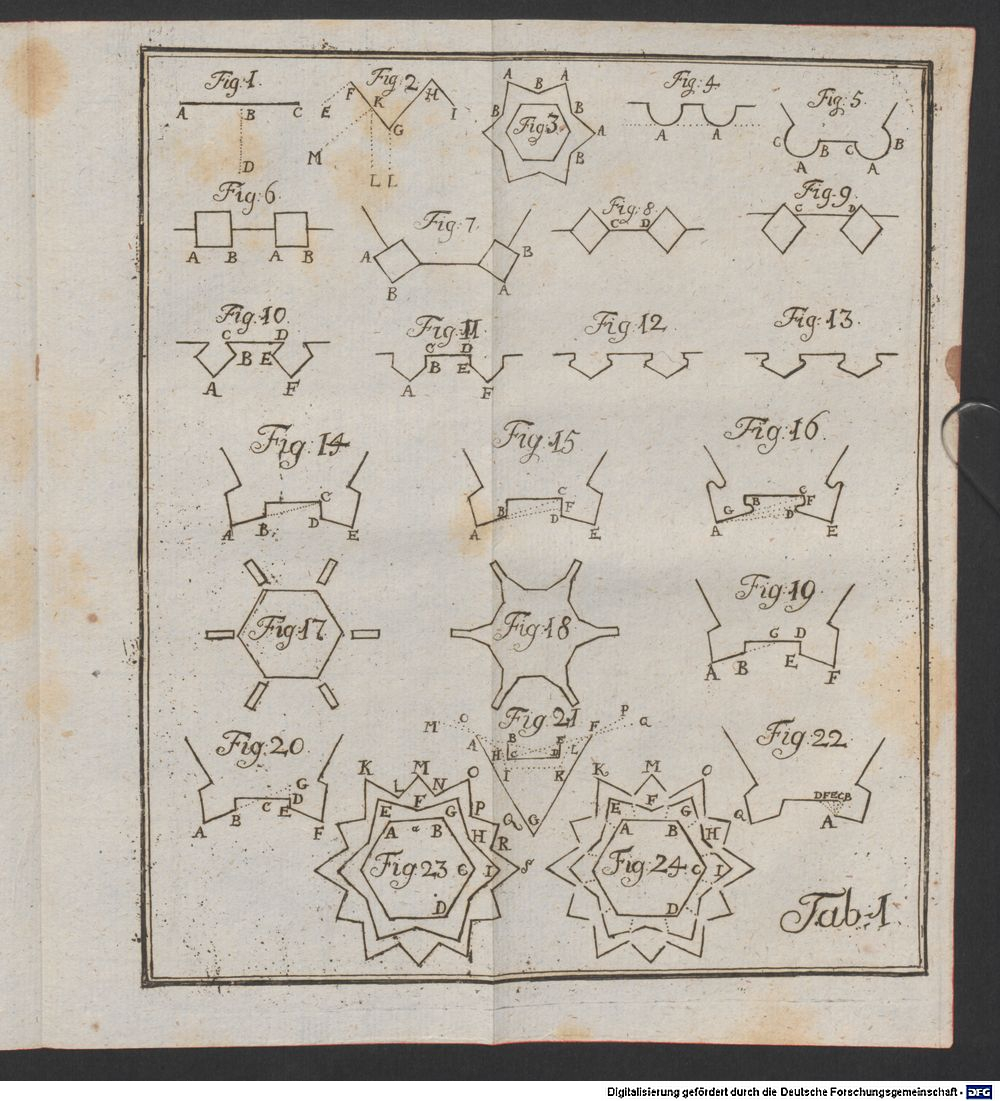 Fig: 1.
A B C
D
Fig: 2
E F K H I
G
M
L L
Fig: 3
A A
B
B B
A
B
Fig: 4
A A
Fig: 5
C B C B
A A
Fig: 6
A B A B
Fig: 7.
A B
B A
Fig: 8.
C D
Fig: 9.
C D
Fig: 10
C D
B E
A F
Fig: 11
C D
B E
A F
Fig: 12
Fig: 13
Fig: 14
C
A B D E
Fig: 15
C
B F
D
A E
Fig: 16
B C
G F
D
A E
Fig: 17
Fig: 18
Fig: 19
C D
A B E F
Fig: 20
G
C D
A B E F
Fig: 21
M O P Q
A B E F
H C D L
I K
Q G
Fig: 22
DFECB
Q A
Fig: 23
K M O
L N
E F G P
A a B H R
C I S
D
Fig: 24
K M O
E F G
A B H
C I
D
Tab: 1
Digitalisierung gefördert durch die Deutsche Forschungsgemeinschaft - DFG